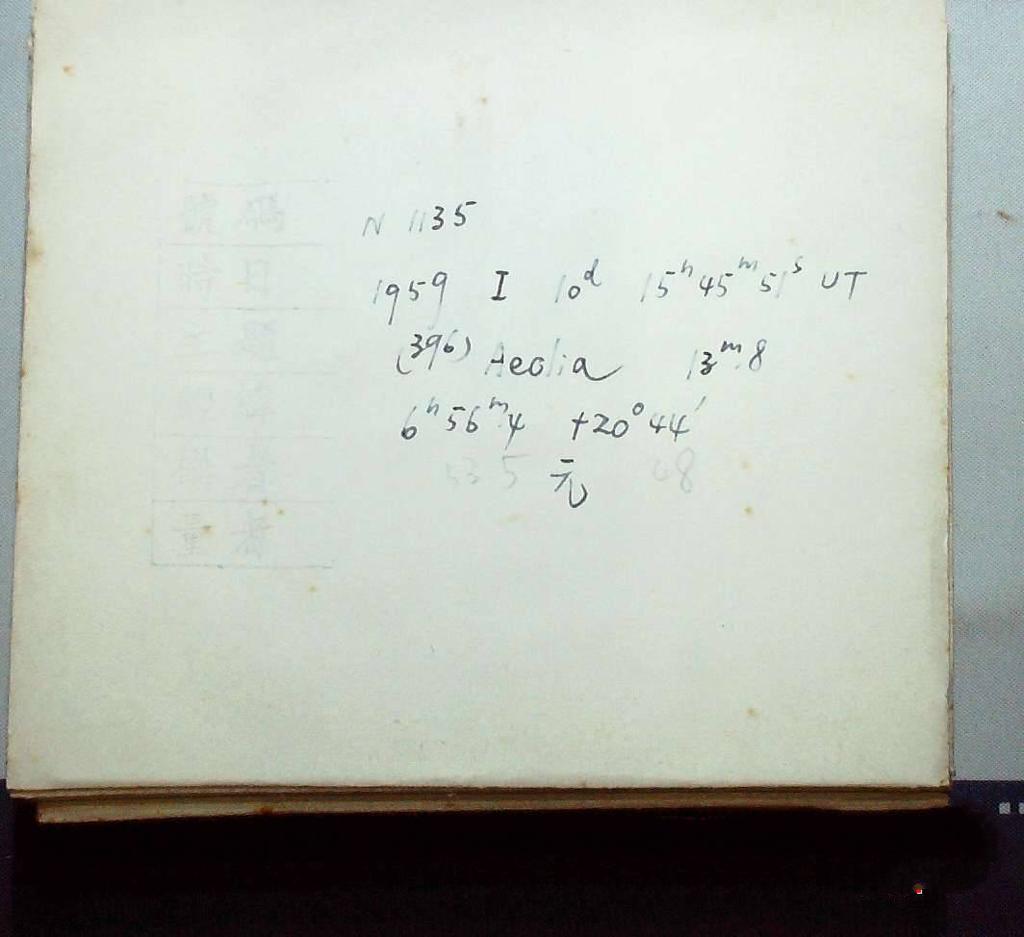 N 1135
1959 I 10ᵈ 15ʰ45ᵐ51ˢ UT
(396) Aeolia 13ᵐ.8
6ʰ56ᵐ.4 +20°44′
53 5 元 48
號碼
時日